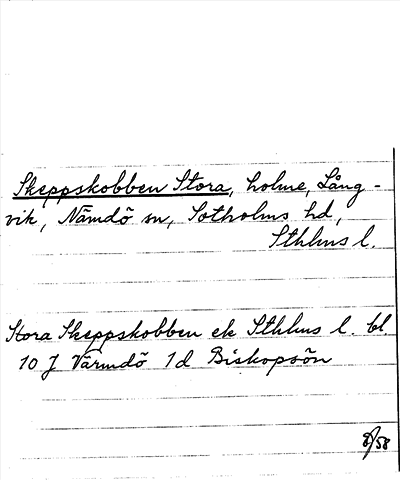 Skeppskobben Stora, holme, Lång-
vik, Nämdö sn, Sotholms hd,
Sthlms l.
Stora Skeppskobben ek Sthlms l. bl.
10 J Värmdö 1d Biskopsön
8/58